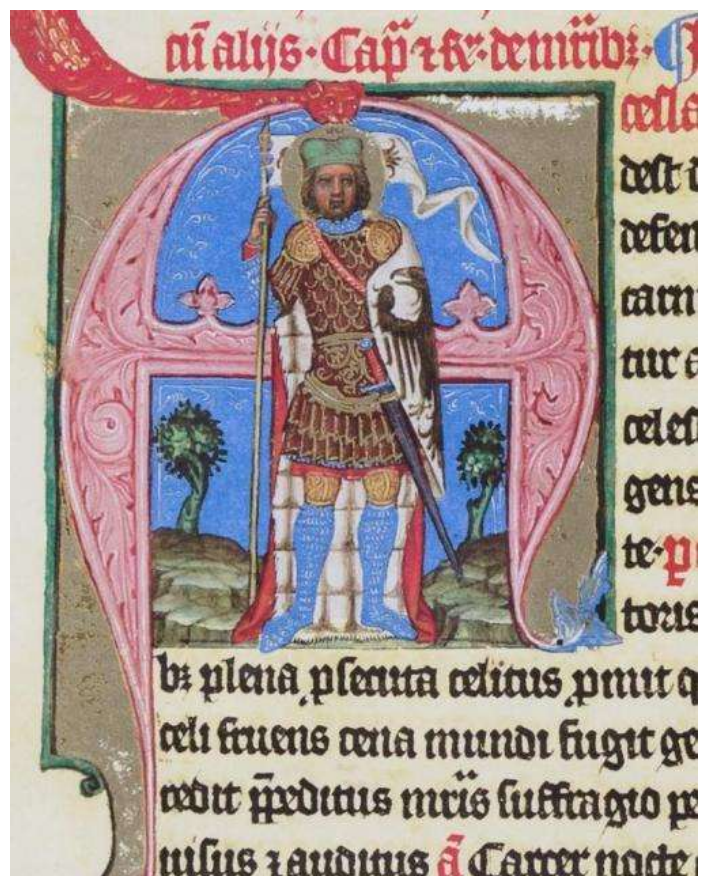 cū alijs · Cap̄ ⁊ R̸ · de mr̄ib⁊ ·
cesla
dest
defen
carni
tur a
celes
gens
te · p
toris
b⁊ plena psecuta celitus pmit q
celi fruens cena mundi fugit ge
cedit p̄peditus mr̄is suffragio pe
uisus ⁊ auditus ā Carcer nocte